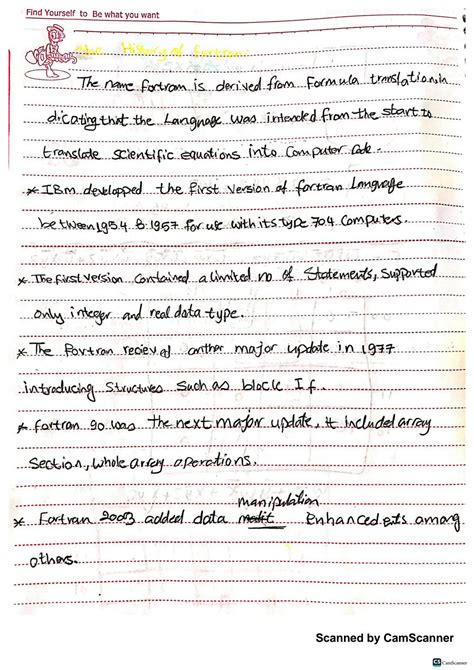 Find Yourself to Be what you want
The History of fortran
The name fortran is derived from Formula translation, in
dicating that the Language was intended from the start to
translate scientific equations into Computer Code.
* IBm developped the first version of fortran Language
between 1954 & 1957 for use with its type 704 Computers.
* The first version Contained a limited no of Statements, Supported
only integer and real data type.
* The Fortran reciev ed another major update in 1977
introducing Structures Such as block If.
* fortran 90 was the next major update, It Included array
Section, whole array operations.
manipulation
* Fortran 2003 added data Enhanced among
others.
Scanned by CamScanner
CS CamScanner